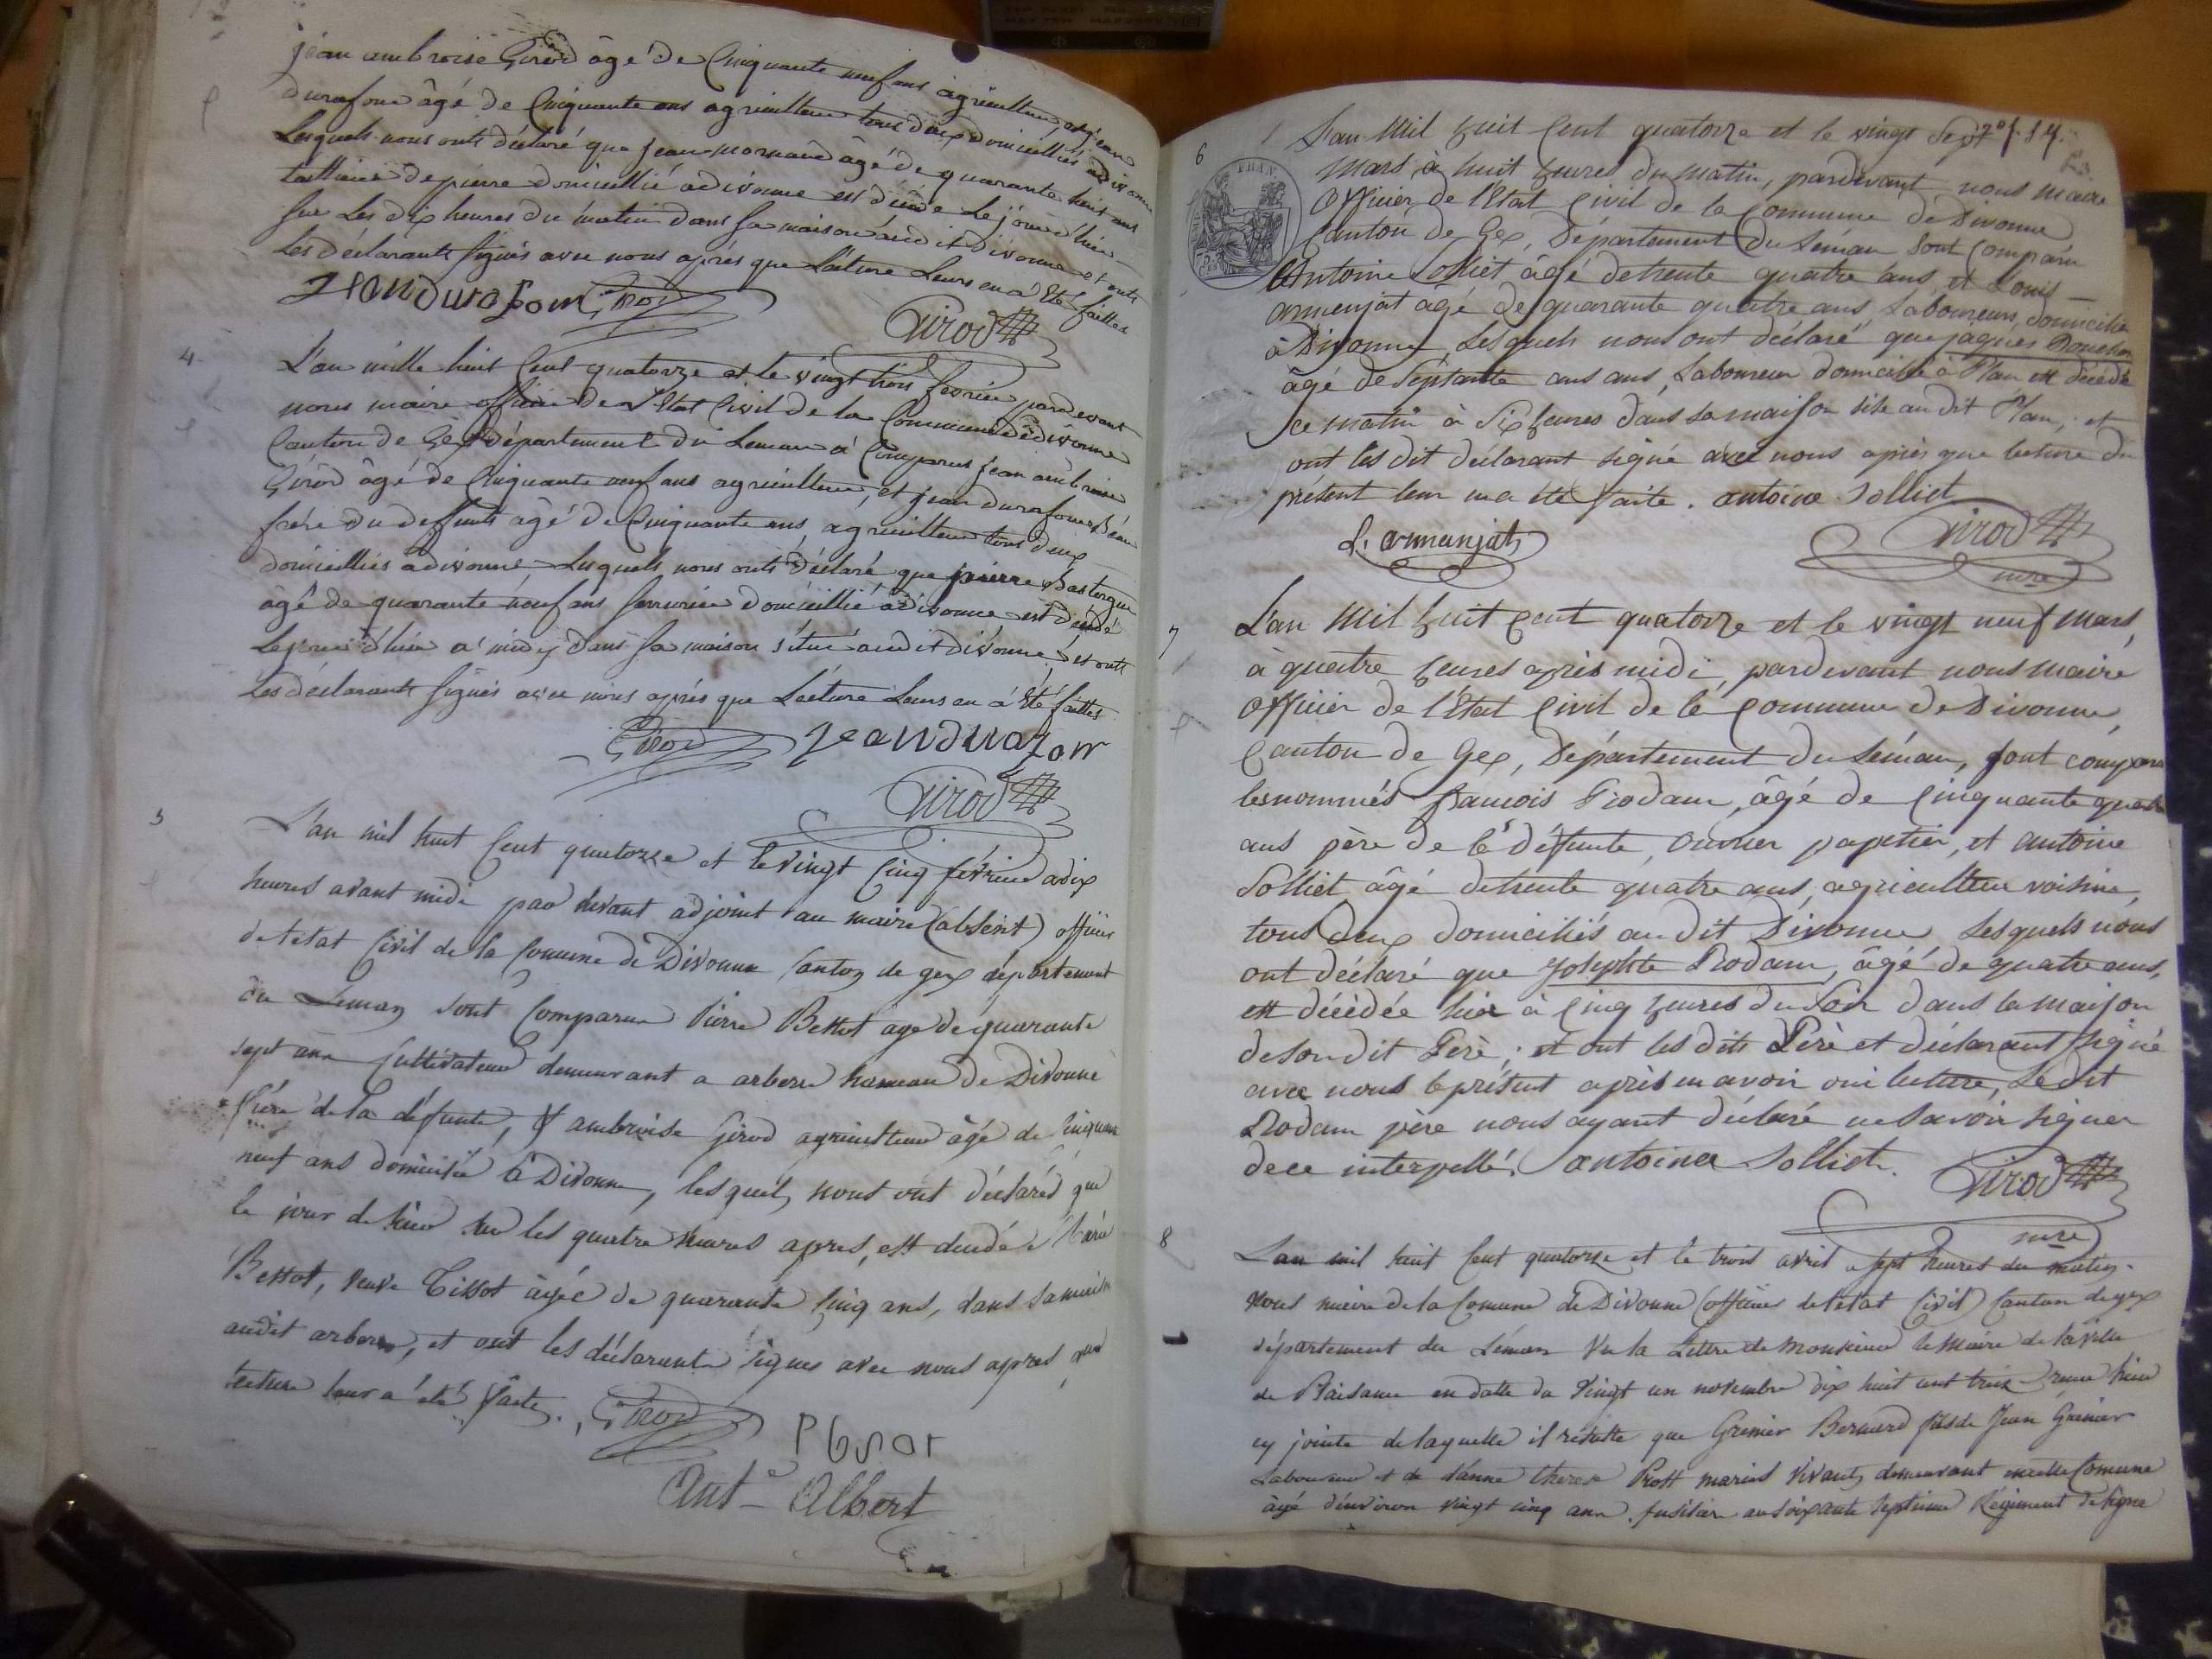 jean ambroise Girod âgé de Cinquante neuf ans agriculteur, et jean
durafour âgé de Cinquante ans agriculteur tous deux domicilliés a divonne
Lesquels nous onts déclaré que jean mornand âgé de quarante huit ans
tailleur de pierre domicillié a divonne est décédé Le jour d'hier
sur Les dix heures du matin dans sa maison audit divonne et onts
Les déclarants signés avec nous après que Lecture Leurs en a été faittes
Jean durafour Girod
Girod
4
L'an mille huit Cent quatorze et le vingt trois fevrier pardevant
nous maire officier de l'Etat Civil de la Commune de divonne
Canton de Gex département du Leman a Comparus jean ambroise
Girod âgé de Cinquante neuf ans agriculteur, et jean durafour
frére du deffunts âgé de Cinquante ans, agriculteur tous deux
domicilliés a divonne Lesquels nous onts déclaré que pierre
âgé de quarante neuf ans domicillié a divonne est décédé
Le jour d'hier a midy dans sa maison situé audit divonne, et onts
Les déclarants signés avec nous après que Lecture Leurs en a été faittes
Girod Jean durafour
Girod
5
L'an mil huit Cent quatorze et le vingt Cinq février a dix
heures avant midi par devant adjoint au maire (absent) officier
de l'etat Civil de la Comune de Divonne Canton de gex département
du Leman sont Comparus Pierre Bettot age de quarante
sept ans Cultivateur demeurant a arbere hameau de Divonne
frère de la défunte, & ambroise Girod agriculteur âgé de Cinquante
neuf ans domicilié à Divonne, lesquels nous ont déclarés que
le jour de hier sur les quatre heures apres, est décédée Marie
Bettot, veuve Tissot âgée de quarante Cinq ans, dans sa maison
audit arbere, et ont les déclarants signés avec nous apres que
lecture leur a été faite. Girod
Ant.e Albert
6
L'an Mil huit Cent quatorze et le vingt Sept
Mars à huit heures du matin, pardevant nous maire
Officier de l'Etat Civil de la Commune de Divonne
Canton de Gex, Département du Léman sont Comparu
Antoine Solliet âgé de trente quatre ans, et Louis
armenjat âgé de quarante quatre ans, Laboureurs, domicilié
à Divonne, Lesquels nous ont déclaré que jaques Bouchon
âgé de Septante ans ans, Laboureur domicilié à Plan est décédé
ce matin à Six heures dans sa maison sise au dit Plan, et
ont les dit déclarant signé avec nous après que lecture du
présent leur en a été faite. antoine Solliet
L. armanjat Girod
mre
7
L'an Mil huit Cent quatorze et le vingt neuf Mars,
à quatre heures après midi, pardevant nous maire
Officier de l'Etat Civil de la Commune de Divonne,
Canton de Gex, Département du Léman, sont comparu
les nommés françois Rodam, âgé de Cinquante quatre
ans père de la défunte, ouvrier papetier, et antoine
Solliet âgé de trente quatre ans, agriculteur voisin,
tous deux domiciliés au dit Divonne Lesquels nous
ont déclaré que Josephte Rodam, âgé de quatre ans,
est décédée hier à Cinq heures du Soir dans la maison
de son dit Père; et ont les dits Père et déclarant signé
avec nous le présent après en avoir oui lecture, Le dit
Rodam père nous ayant déclaré ne savoir signer
de ce interpellé. antoine Solliet. Girod
mre
8
L'an mil huit Cent quatorze et le trois avril a sept heures du matin.
nous maire de la Comune de Divonne (officier de l'etat Civil) Canton de gex
département du Léman Vu la Lettre de Monsieur le Maire de la ville
de Plaisance en datte du vingt un novembre dix huit cent treize
cy jointe de laquelle il résulte que Grenier Bernard fils de Jean Grenier
Laboureur et de Jeanne therese Prost mariés vivants, demeurant en cette Comune
âgé d'environ vingt cinq ans. fusilier au soixante septieme Régiment de ligne